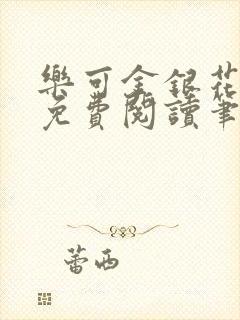 樂可金銀花
免費閱讀筆
蕾西